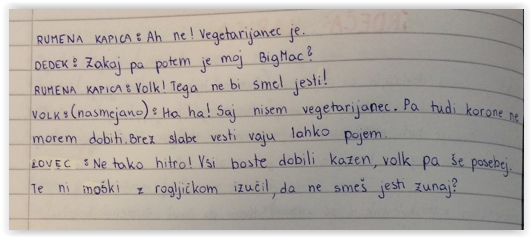 RUMENA KAPICA: Ah ne! Vegetarijanec je.
DEDEK: Zakaj pa potem je moj BigMac?
RUMENA KAPICA: Volk! Tega ne bi smel jesti!
VOLK: (nasmejano): Ha ha! Saj nisem vegetarijanec. Pa tudi korone ne
morem dobiti. Brez slabe vesti vaju lahko pojem.
LOVEC: Ne tako hitro! Vsi boste dobili kazen, volk pa še posebej.
Te ni moški z rogljičkom izučil, da ne smeš jesti zunaj?